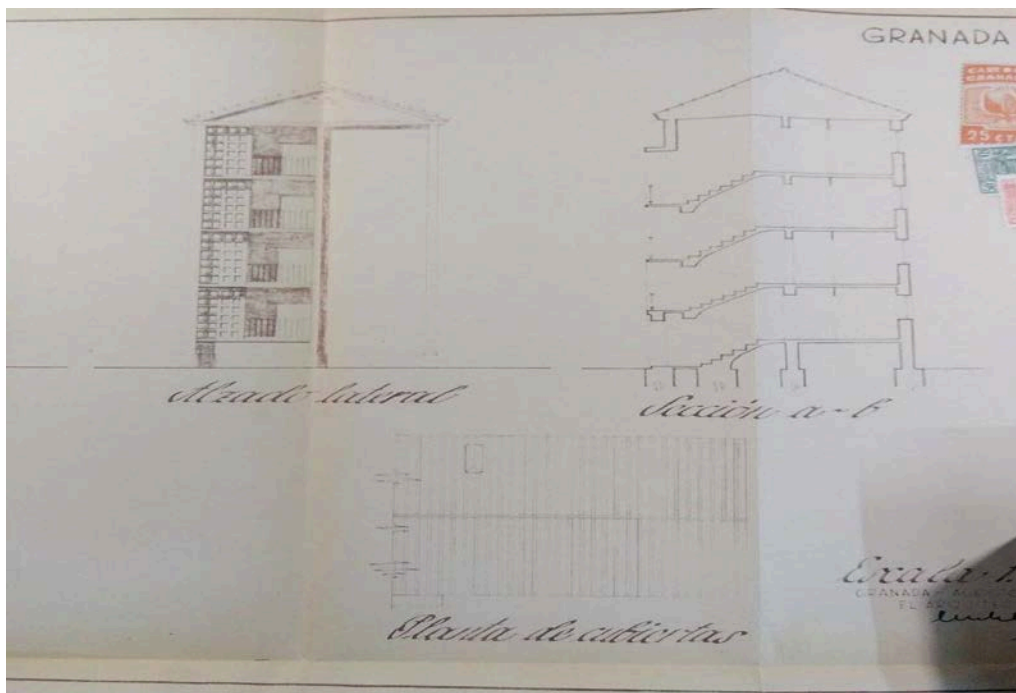 GRANADA
25 CT
Alzado lateral
Sección a-b
Planta de cubiertas
Escala 1:
GRANADA
EL ARQUITECTO